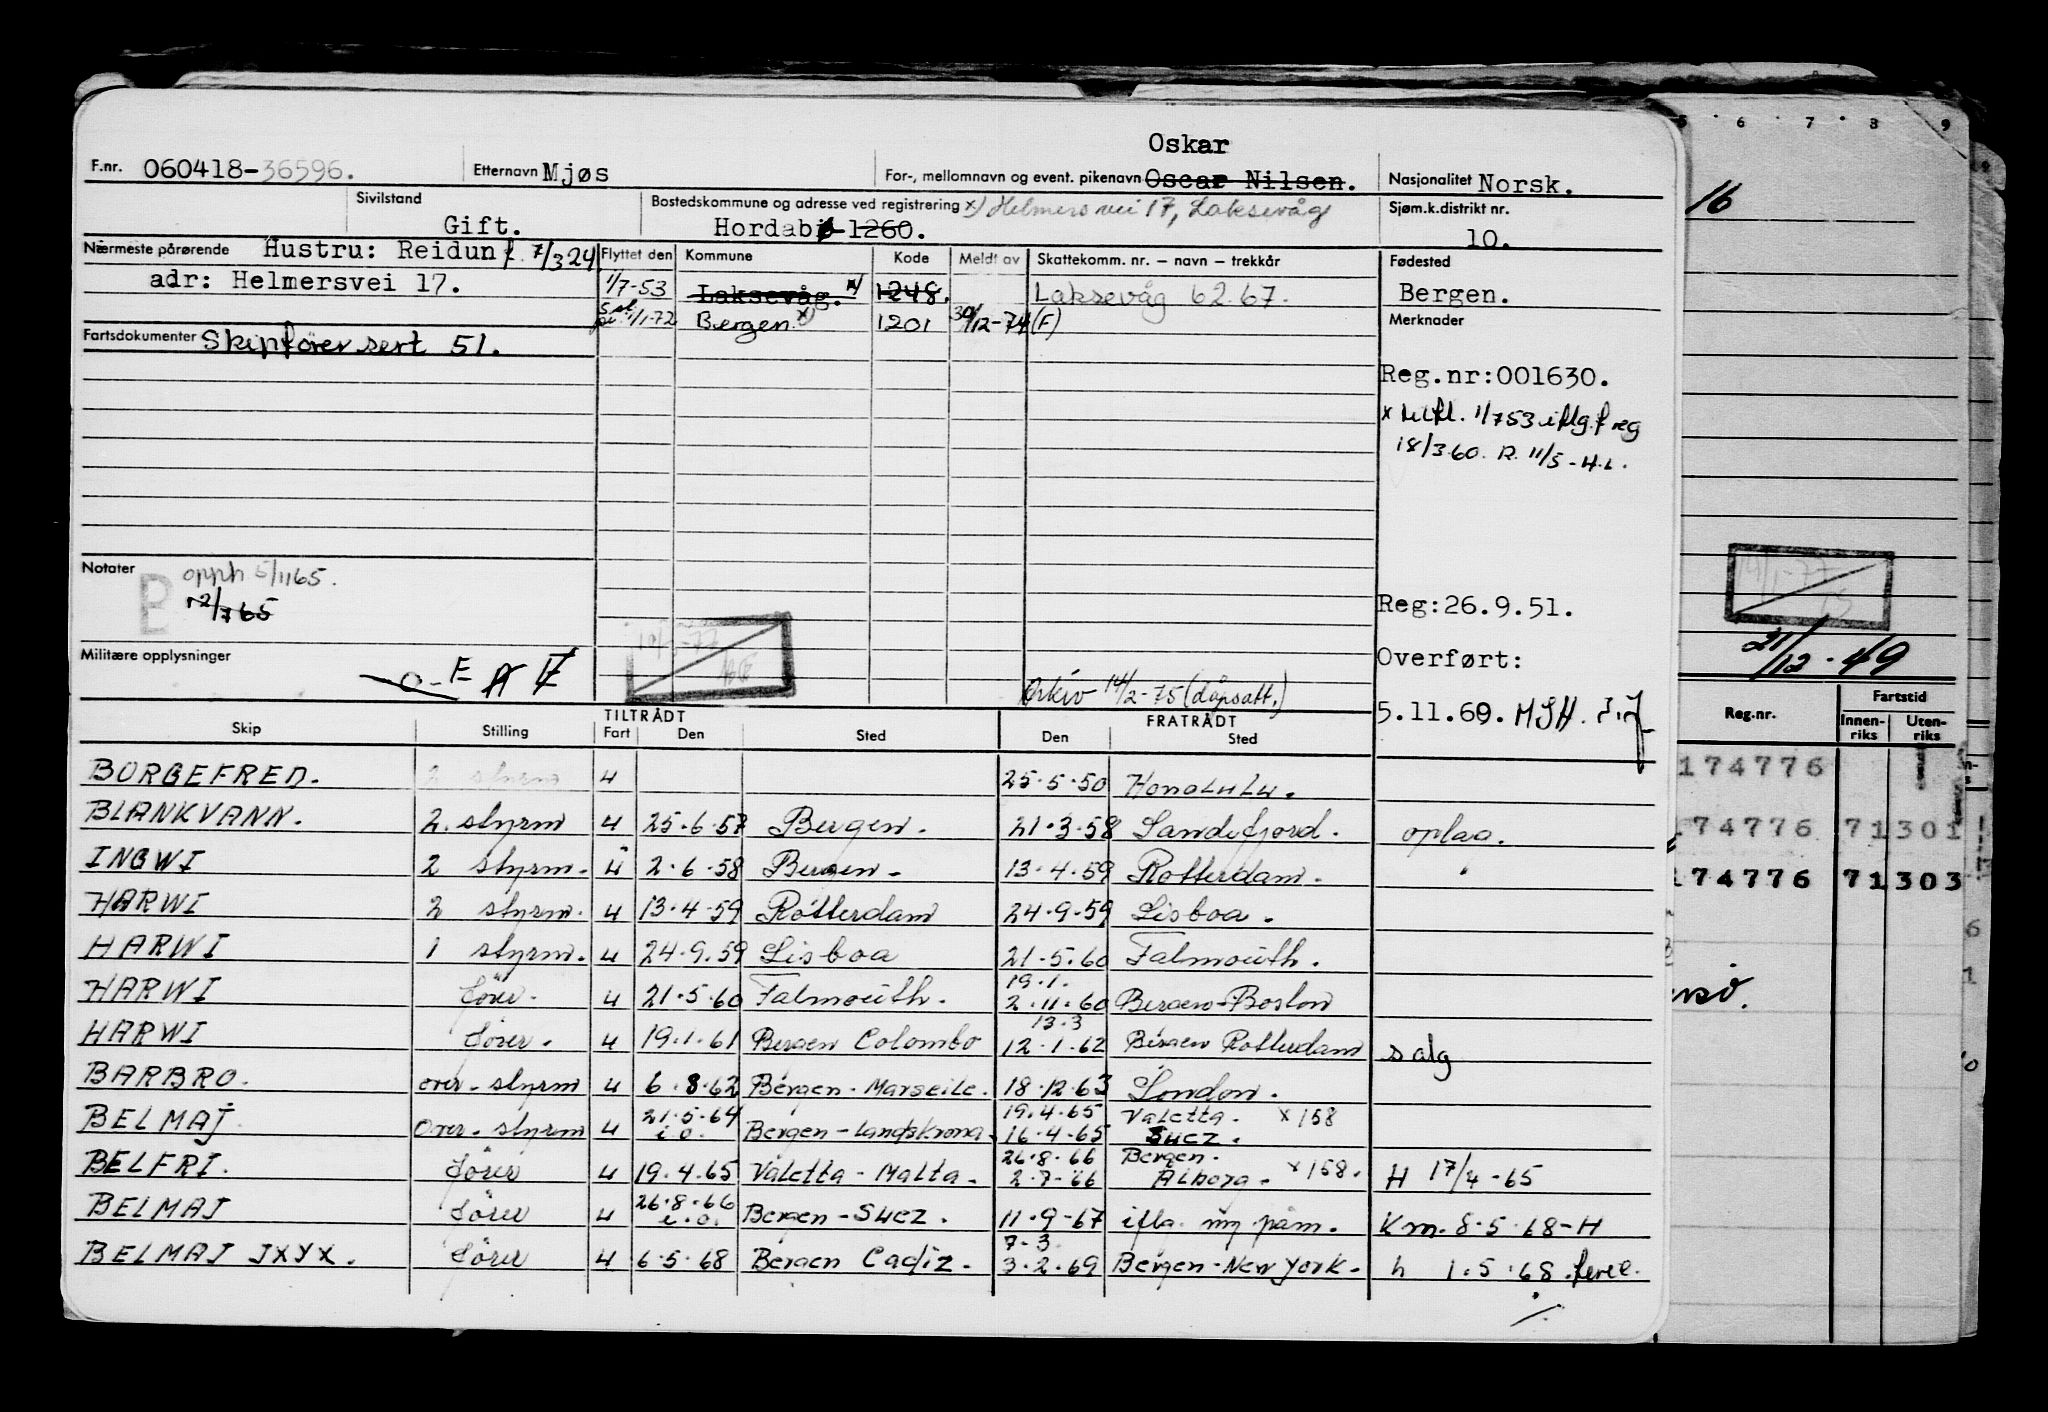 Oskar
F.nr. 060418-36596. Etternavn Mjøs For-, mellomnavn og event. pikenavn Oscar Nilsen. Nasjonalitet Norsk.
Sivilstand Gift. Bostedskommune og adresse ved registrering x) Helmers vei 17, Laksevåg Sjøm.k.distrikt nr.
Hordabø 1260. 10.
Nærmeste pårørende Hustru: Reidun f. 7/3 24 Flyttet den Kommune Kode Meldt av Skattekomm. nr. – navn – trekkår Fødested
adr: Helmersvei 17. 1/7-53 Laksevåg. x) 1248. Laksevåg 62.67. Bergen.
1/1-72 Bergen x) 1201 30/12-74 (F) Merknader
Fartsdokumenter Skipfører sert 51.
Reg.nr:001630.
x 1/7 53 iflg. f reg
18/3 60. R. 11/5 - H.L.
Notater opph 5/11 65.
12/7 65
Reg:26.9.51.
Militære opplysninger -o- E A F
Overført:
Arkiv 14/2-75 (dåpsatt.)
5.11.69. MSH.
Skip Stilling TILTRÅDT Fart Den Sted FRATRÅDT Den Sted
BORGEFRED. 2 styrm 4 25.5.50 Honolulu.
BLANKVANN. 2. styrm 4 25.6.57 Bergen. 21.3.58 Sandefjord. oplag.
INGWI 2 styrm. 4 2.6.58 Bergen. 13.4.59 Rotterdam. "
HARWI 2 styrm. 4 13.4.59 Rotterdam 24.9.59 Lisboa.
HARWI 1 styrm. 4 24.9.59 Lisboa 21.5.60 Falmouth.
19.1.
HARWI fører. 4 21.5.60 Falmouth. 2.11.60 Bergen-Boston
13.3
HARWI fører. 4 19.1.61 Bergen Colombo 12.1.62 Bergen Rotterdam salg
BARBRO. over-styrm 4 6.8.62 Bergen-Marseile. 18.12.63 London.
21.5.64 19.4.65 Valetta. x 158
BELMAJ. Over-styrm 4 i.o. Bergen-Landskrona. 16.4.65 Suez.
26.8.66 Bergen.
BELFRI. fører 4 19.4.65 Valetta-Malta. 2.7-66 Ålborg. x 158. H 17/4-65
26.8.66
BELMAJ fører 4 i.o. Bergen-Suez. 11.9-67 iflg. ny påm. Km. 8.5.68-H
7-3.
BELMAJ JXYX. fører 4 6.5.68 Bergen Cadiz. 3.2.69 Bergen-New York. h 1.5.68. ferie.
5 6 7 8 9
16
21/12-49
Reg.nr. Fartstid
Innen-riks Uten-riks
174776
74776 71301
174776 71303